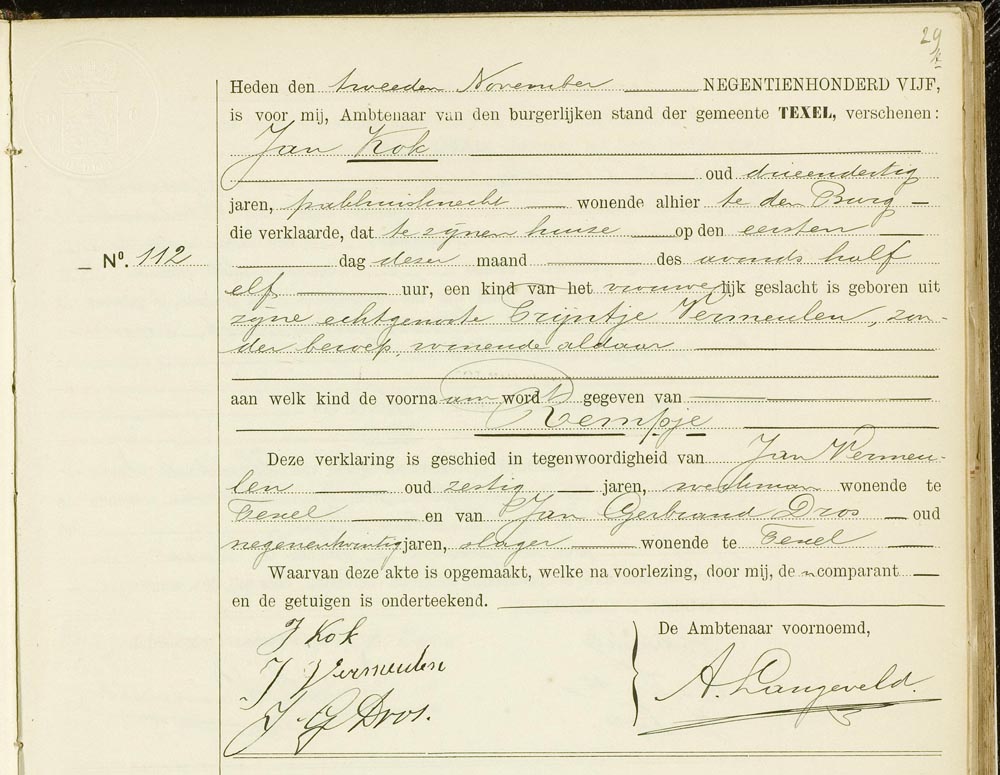 29
Heden den tweeden November NEGENTIENHONDERD VIJF,
is voor mij, Ambtenaar van den burgerlijken stand der gemeente TEXEL, verschenen:
Jan Kok
oud drieendertig
jaren, pakhuisknecht wonende alhier te den Burg
die verklaarde, dat te zijnen huize op den eersten
Nº. 112
dag dezer maand des avonds half
elf uur, een kind van het vrouwelijk geslacht is geboren uit
zijne echtgenoote Trijntje Vermeulen, zon-
der beroep, wonende aldaar
aan welk kind de voornaam wordt gegeven van
Rempje
Deze verklaring is geschied in tegenwoordigheid van Jan Vermeu-
len oud zestig jaren, werkman wonende te
Texel en van Jan Gerbrand Dros oud
negenentwintig jaren, slager wonende te Texel
Waarvan deze akte is opgemaakt, welke na voorlezing, door mij, den comparant
en de getuigen is onderteekend.
De Ambtenaar voornoemd,
J Kok
J Vermeulen
J G Dros.
A. Langeveld.